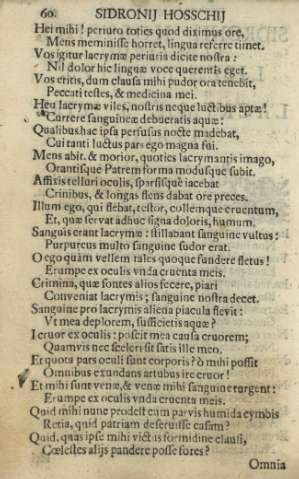 60. SIDRONII HOSSCHII
Hei mihi! periuro toties quod diximus ore,
Mens meminisse horret, lingua referre timet.
Vos igitur lacrymæ periuria dicite nostra:
Nil dolor hic linguæ voce querentis eget.
Vos eritis, dum clausa mihi pudor ora tenebit,
Peccati testes, & medicina mei.
Heu lacrymæ viles, nostris neque luctibus aptæ!
Currere sanguineæ debueratis aquæ:
Qualibus hac ipsa perfusus nocte madebat,
Cui tanti luctus pars ego magna fui.
Mens abit. & morior, quoties lacrymantis imago,
Orantisque Patrem forma modusque subit.
Affixis telluri oculis, sparsisque iacebat
Crinibus, & longas flens dabat ore preces.
Illum ego, qui flebat, testor, collemque cruentum,
Et, quæ servat adhuc signa doloris, humum.
Sanguis erant lacrymæ: stillabant sanguine vultus:
Purpureus multo sanguine sudor erat.
O ego quàm vellem tales quoque fundere fletus!
Erumpe ex oculis vnda cruenta meis.
Crimina, quæ fontes alios fecere, piari
Conveniat lacrymis; sanguine nostra decet.
Sanguine pro lacrymis aliena piacula flevit:
Vt mea deplorem, sufficietis aquæ?
I cruor ex oculis: poscit mea causa cruorem;
Quamvis nec sceleri sit satis ille meo.
Et quota pars oculi sunt corporis? ô mihi possit
Omnibus exundans artubus ire cruor!
Et mihi sunt venæ, & venæ mihi sanguine turgent:
Erumpe ex oculis vnda cruenta meis.
Quid mihi nunc prodest cum parvis humida cymbis
Retia, quid patriam deseruisse casam?
Quid, quas ipse mihi victus formidine clausi,
Cœlestes alijs pandere posse fores?
Omnia